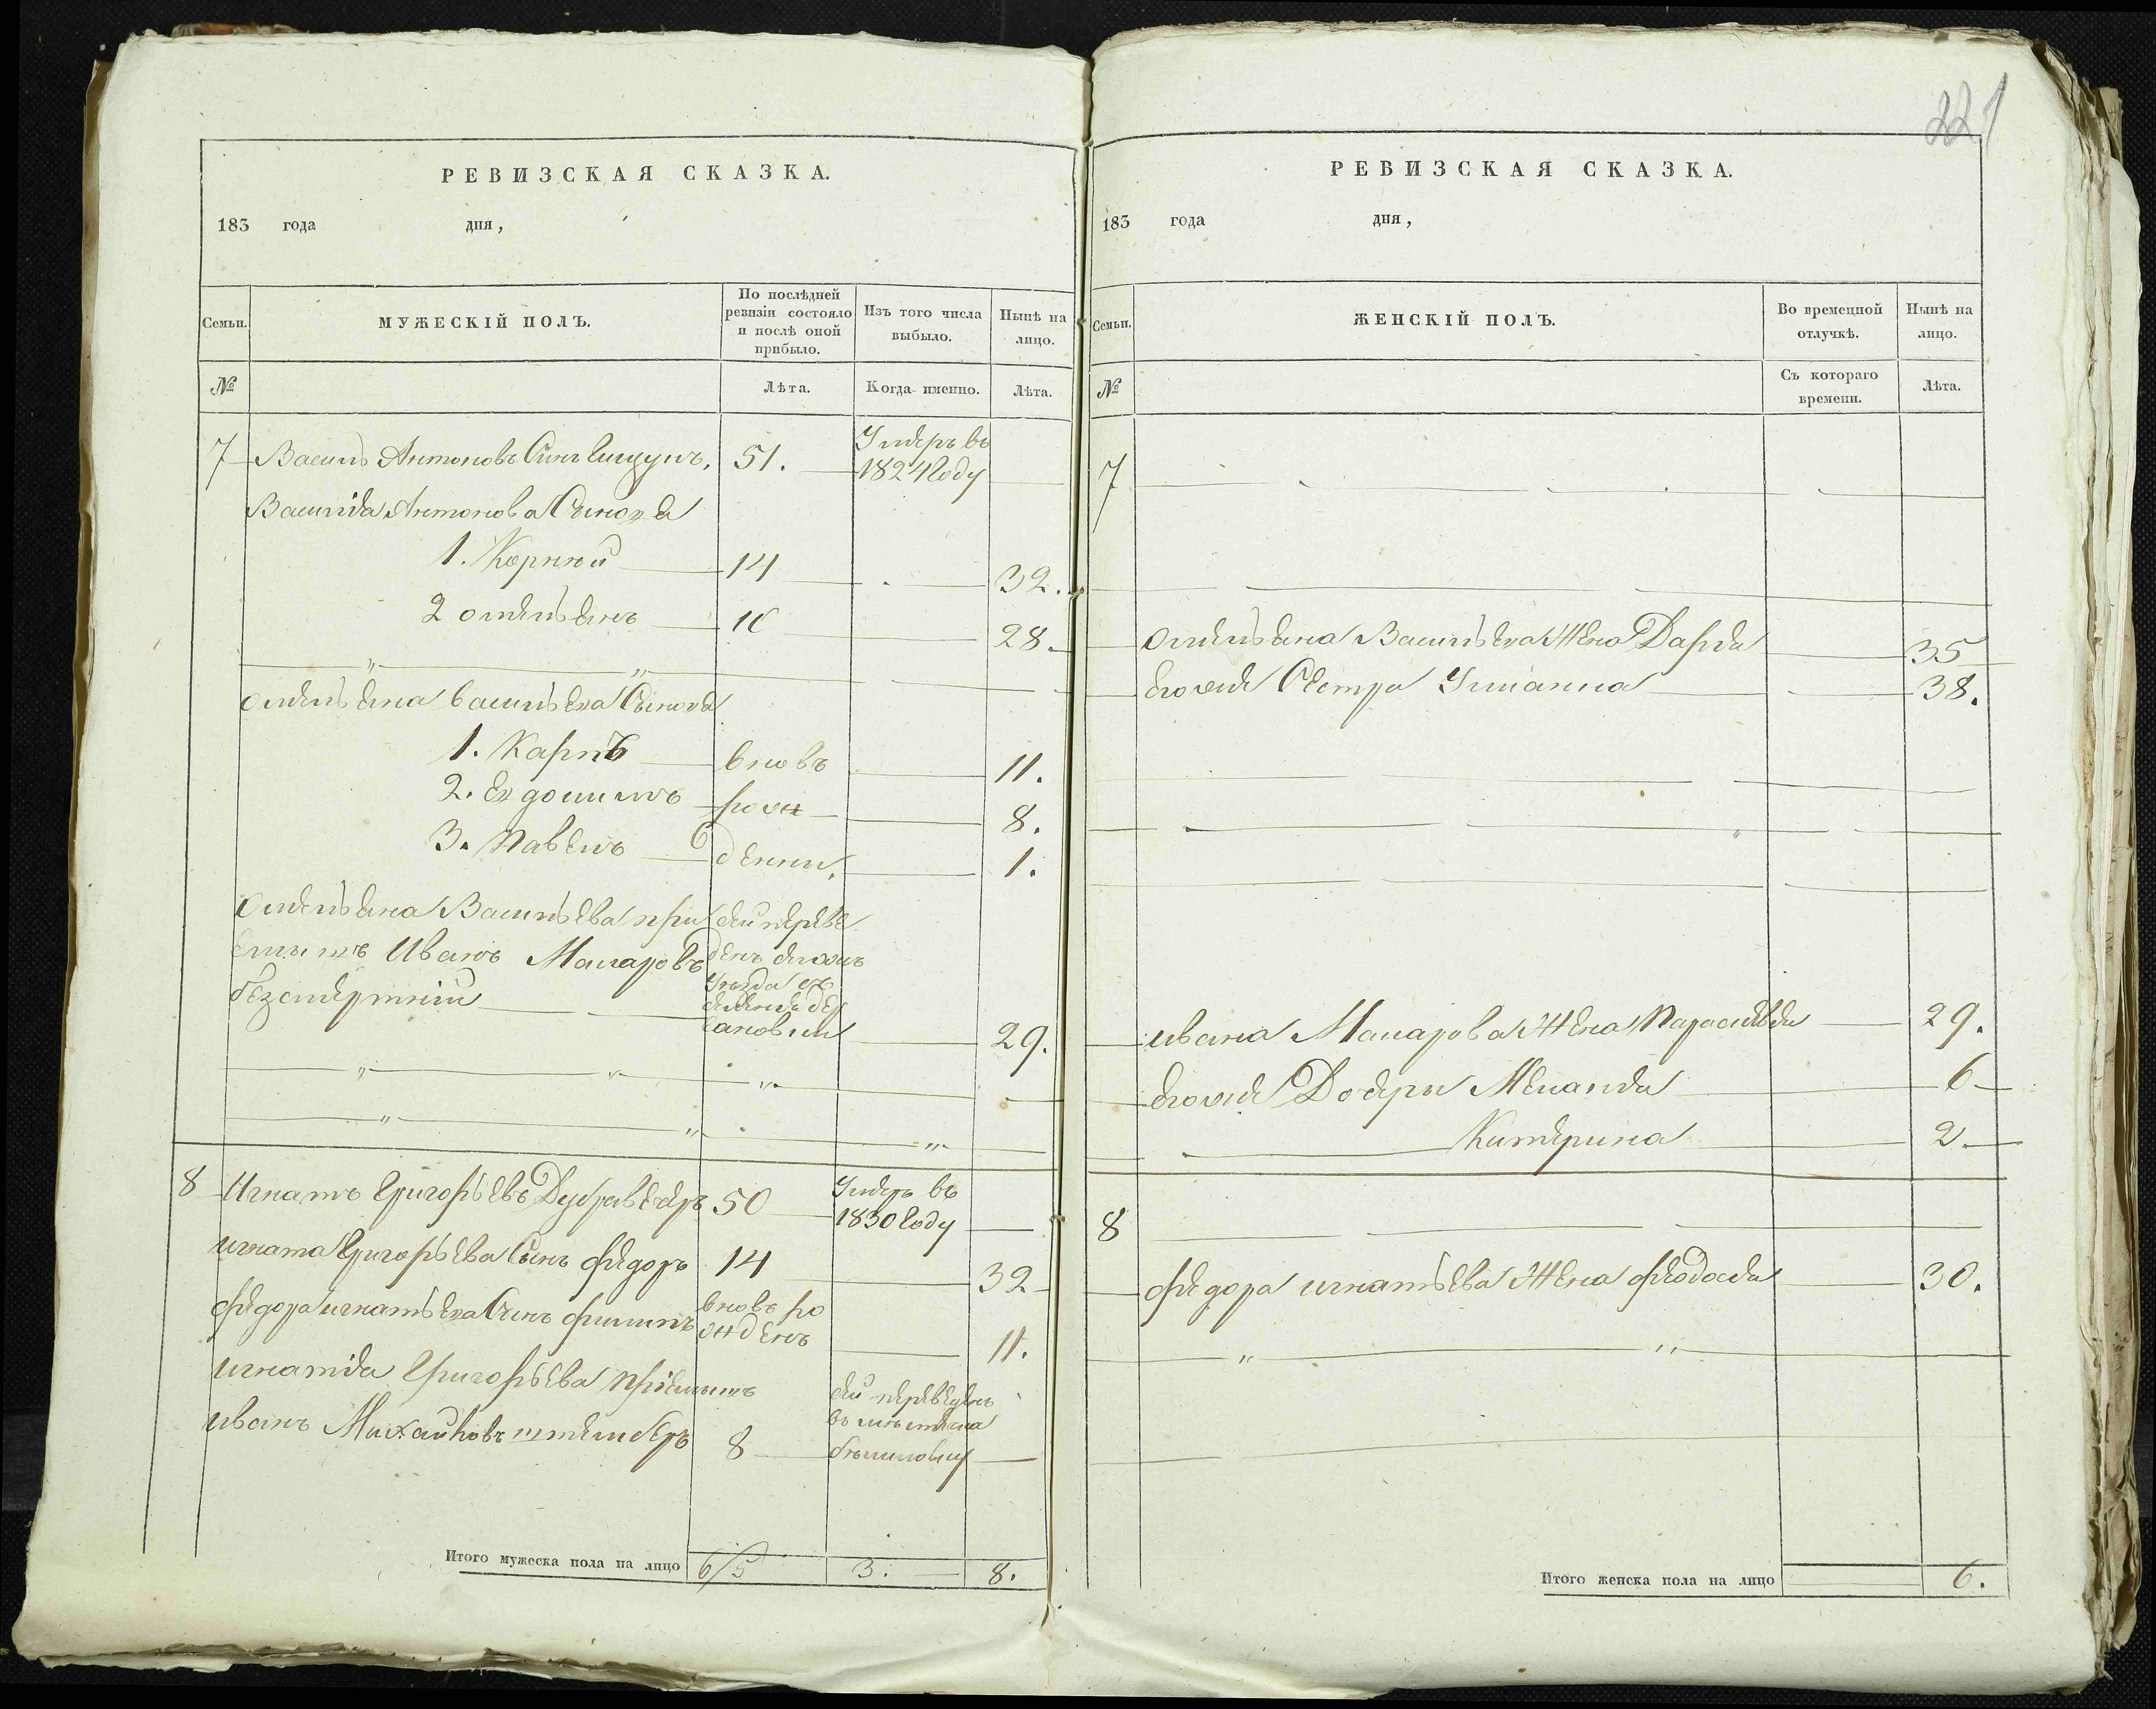 221
РЕВИЗСКАЯ СКАЗКА.
183 года дня,
Семьи.
МУЖЕСКІЙ ПОЛЪ.
По послѣдней ревизіи состояло и послѣ оной прибыло.
Изъ того числа выбыло.
Нынѣ на лицо.
№
Лѣта.
Когда именно.
Лѣта.
7 Василь Антоновъ Синъ 51. Умеръ въ 1824 году
Василія Антонова Сыновя
1. Корній 14 32.
2 омелѣянъ 10 28
омелѣяна василѣва Сыновя
1. Карпъ вновъ 11.
2. Евдокимъ рож 8.
3. Павелъ денни. 1.
омелѣяна Василѣва при сей переве
емышъ Иванъ Макаровъ денъ
безсмертній 29.
8 Игнатъ Григорѣевъ 50 Умеръ въ 1830 году
игната Григорѣева Сынъ федоръ 14 32
федора игнатѣва Синъ филипъ вновъ рожденъ 11.
игнатія Григорѣева пріемышъ
иванъ Михайловъ 8 сей переведенъ въ
Итого мужеска пола на лицо 6/5 3. 8.
РЕВИЗСКАЯ СКАЗКА.
183 года дня,
Семьи.
ЖЕНСКІЙ ПОЛЪ.
Во временной отлучкѣ.
Нынѣ на лицо.
№
Съ котораго времени.
Лѣта.
7
омелѣяна Василѣва Жена Дарія 35
егоже Сестра Улианна 38.
ивана Макарова Жена Параскѣвія 29.
егоже Дочери Меланія 6
Катерина 2
8
федора игнатѣева Жена феодосія 30.
Итого женска пола на лицо 6.